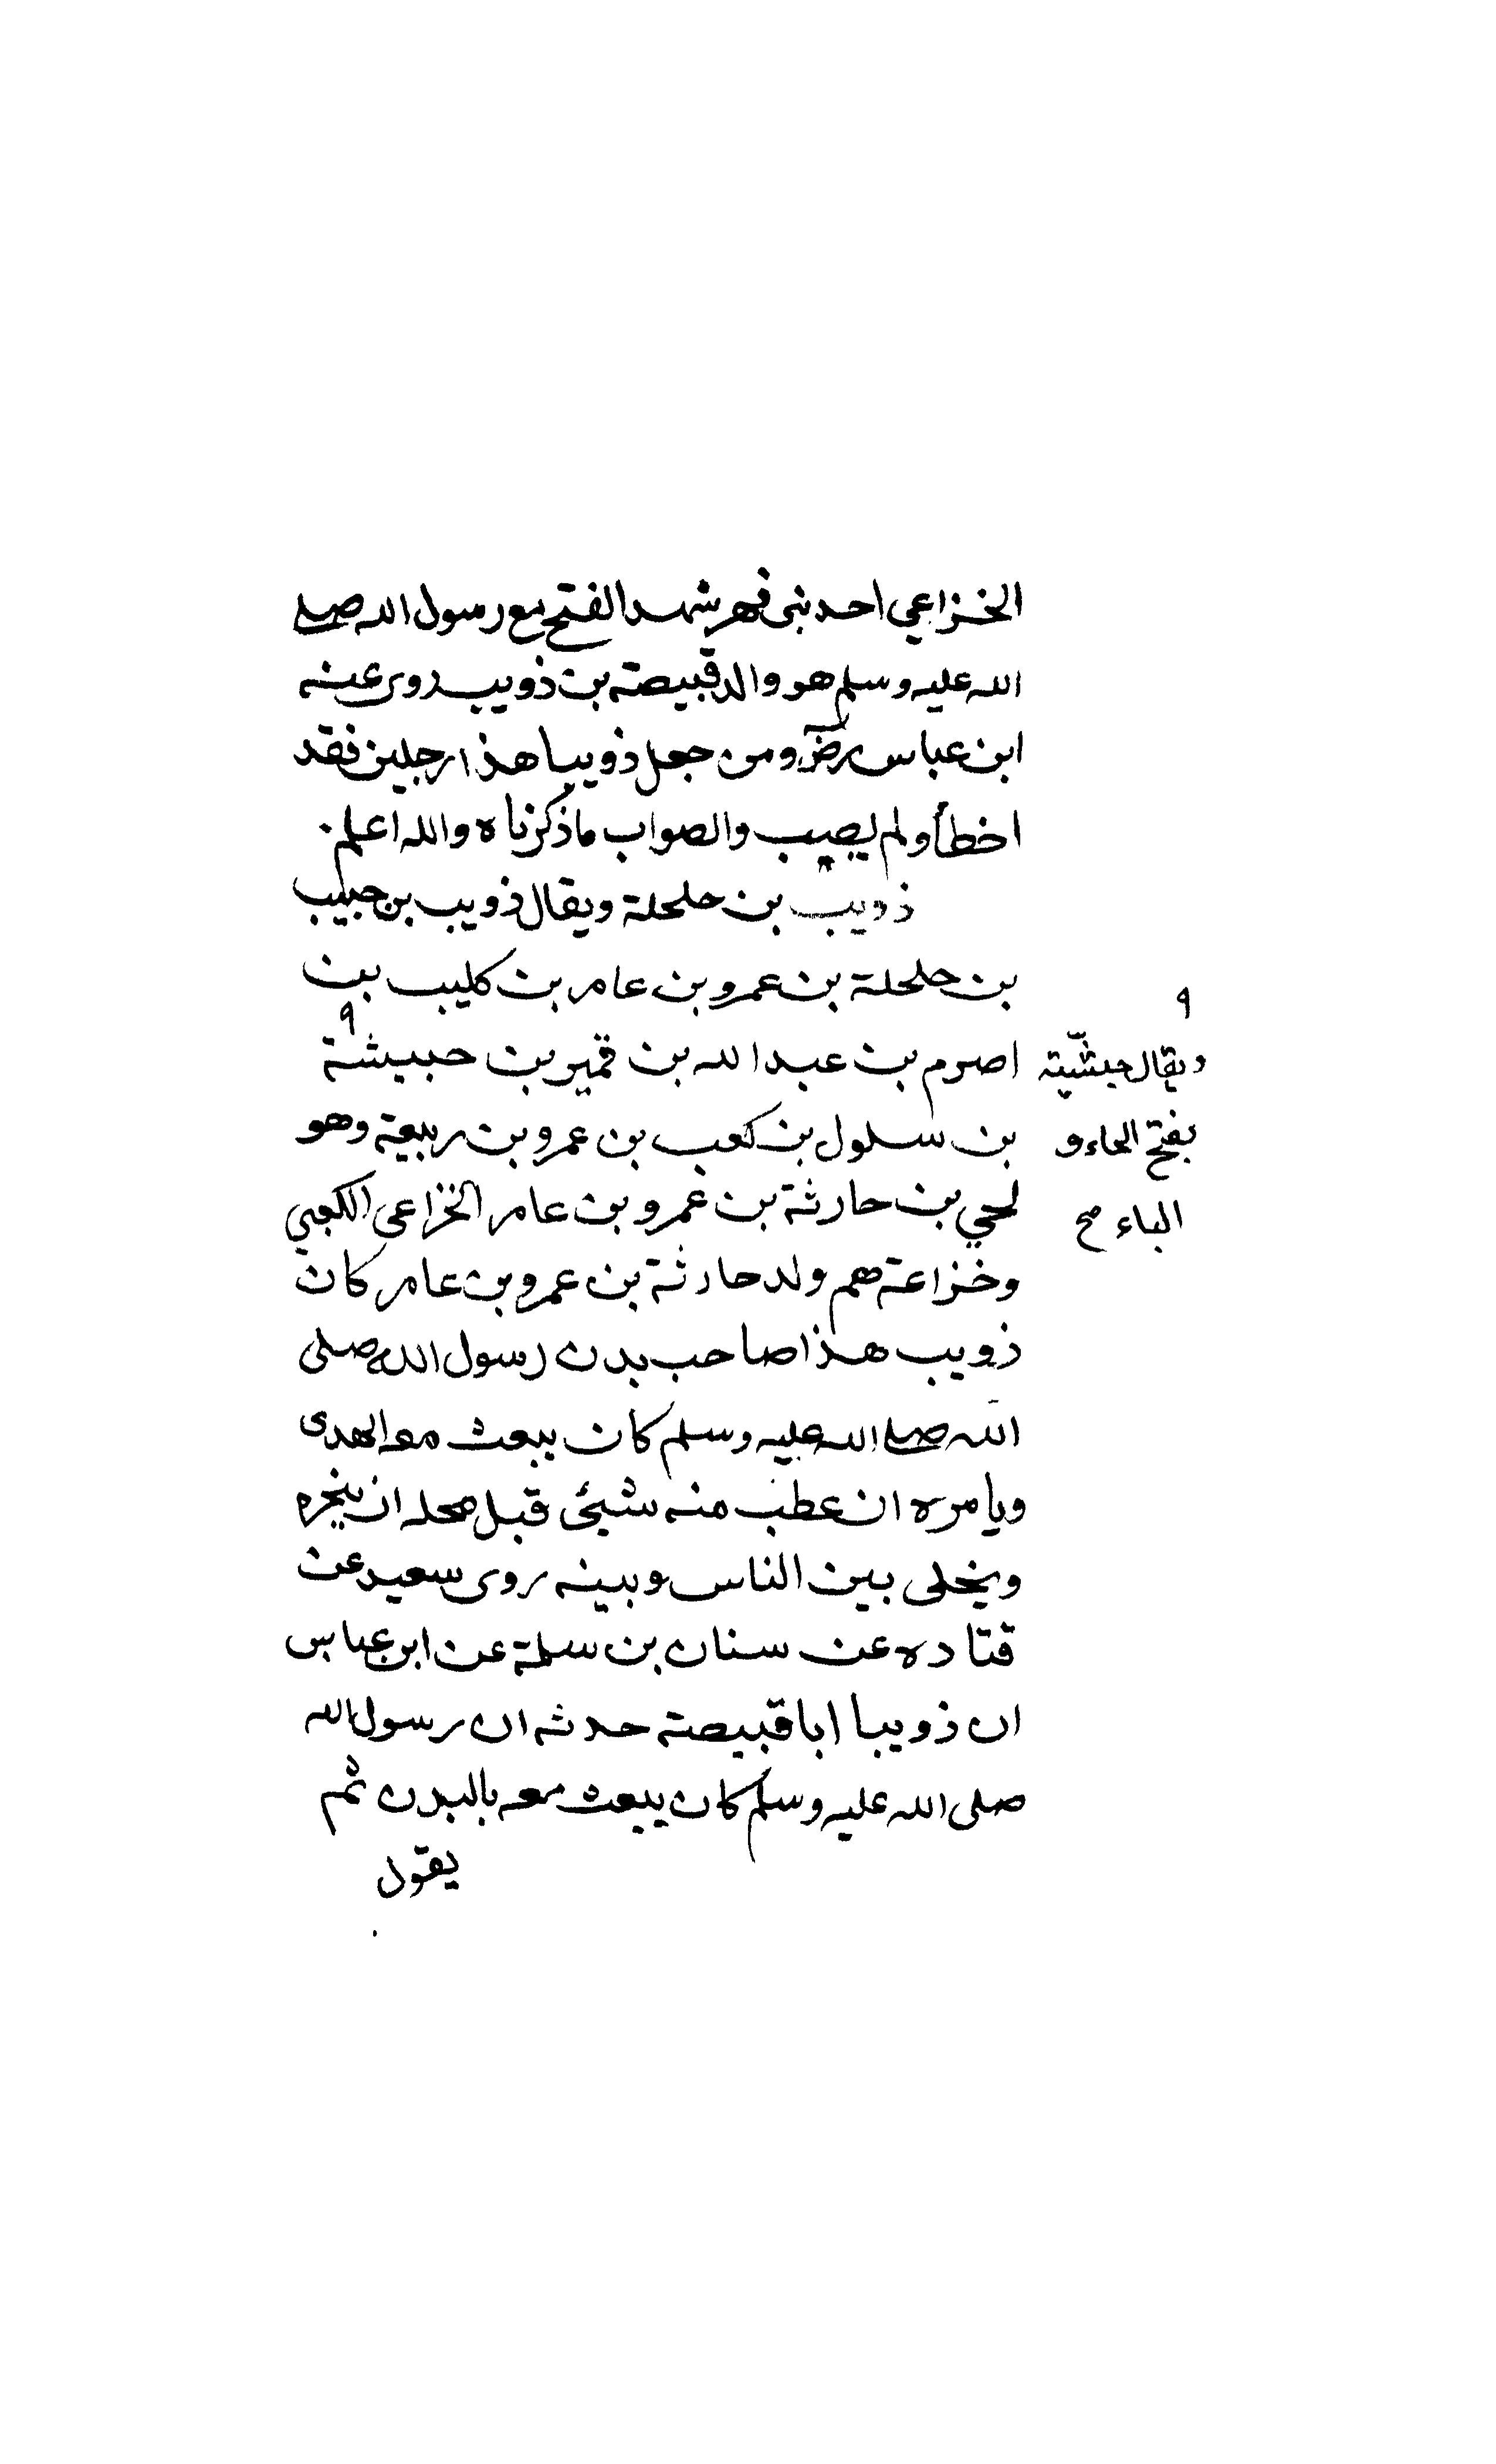 الخزاعي احد بني فهر شهد الفتح مع رسول الله صلى
الله عليه وسلم هو والد قبيصة بن ذويب روى عنه
ابن عباس رضٓ ومن جعل ذويبا هذا رجلين فقد
اخطأ ولم يصيب والصواب ما ذكرناه والله اعلم .
ذويب بن حلحلة ويقال ذويب بن حبيب
بن حلحلة بن عمرو بن عامر بن كليب بن
اصرم بن عبد الله بن قمير بن حبيشة ٩
بن سلول بن كعب بن عمرو بن ربيعة وهو
لحي بن حارثة بن عمرو بن عامر الخزاعى الكعبي
وخزاعة هم ولد حارثة بن عمرو بن عامر كان
ذويب هذا صاحب بدن رسول الله صلى
الله صلى الله عليه وسلم كان يبعث معه الهدى
ويامره ان عطب منه شيئ قبل محله ان ينحره
ويخلى بين الناس وبينه روى سعيد عن
قتاده عن سنان بن سلمة عن ابن عباس
ان ذويبا ابا قبيصة حدثه ان رسول الله
صلى الله عليه وسلم كان يبعث معه بالبدن ثم
يقول
٩
ويقال حبشّية
بفتح الحاء و
الباء صح